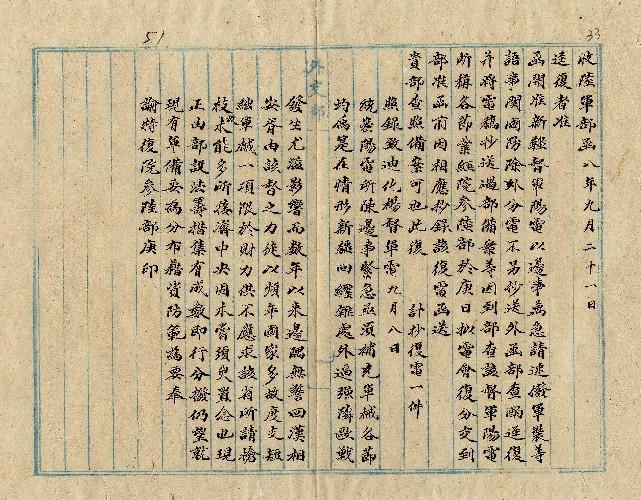 33
51
外交部
收陸軍部函八年九月二十一日
逕復者准
函開准新疆督軍陽電以邊事孟急請速撥軍裝等
語事關國防除外分電不另抄送外函部查酌逕復
並將電稿抄送過部備案等因到部查該督軍陽電
所稱各節業經院參陸部於庚日拟電會復分交到
部准函前因相應抄錄該復電函送
貴部查照備案可也此復 計抄復電一件
照錄致迪化楊督軍電九月八日
統密陽電所陳邊事緊急亟須補充軍械各節
均為是在情形新疆回纏雜處外逼强隣歐戰
發生尤滋影響而數年以來邊隅無警回漢相
安胥由該督之力徒以頻年國家多故度支短
絀軍械一項限於財力供不應求該省所請槍
枝未能多所接濟中央因未嘗須臾置念也現
正由部設法籌措集有成數即行分撥仍望就
現有軍備妥為分布藉資防範為要奉
諭特復院參陸部庚印